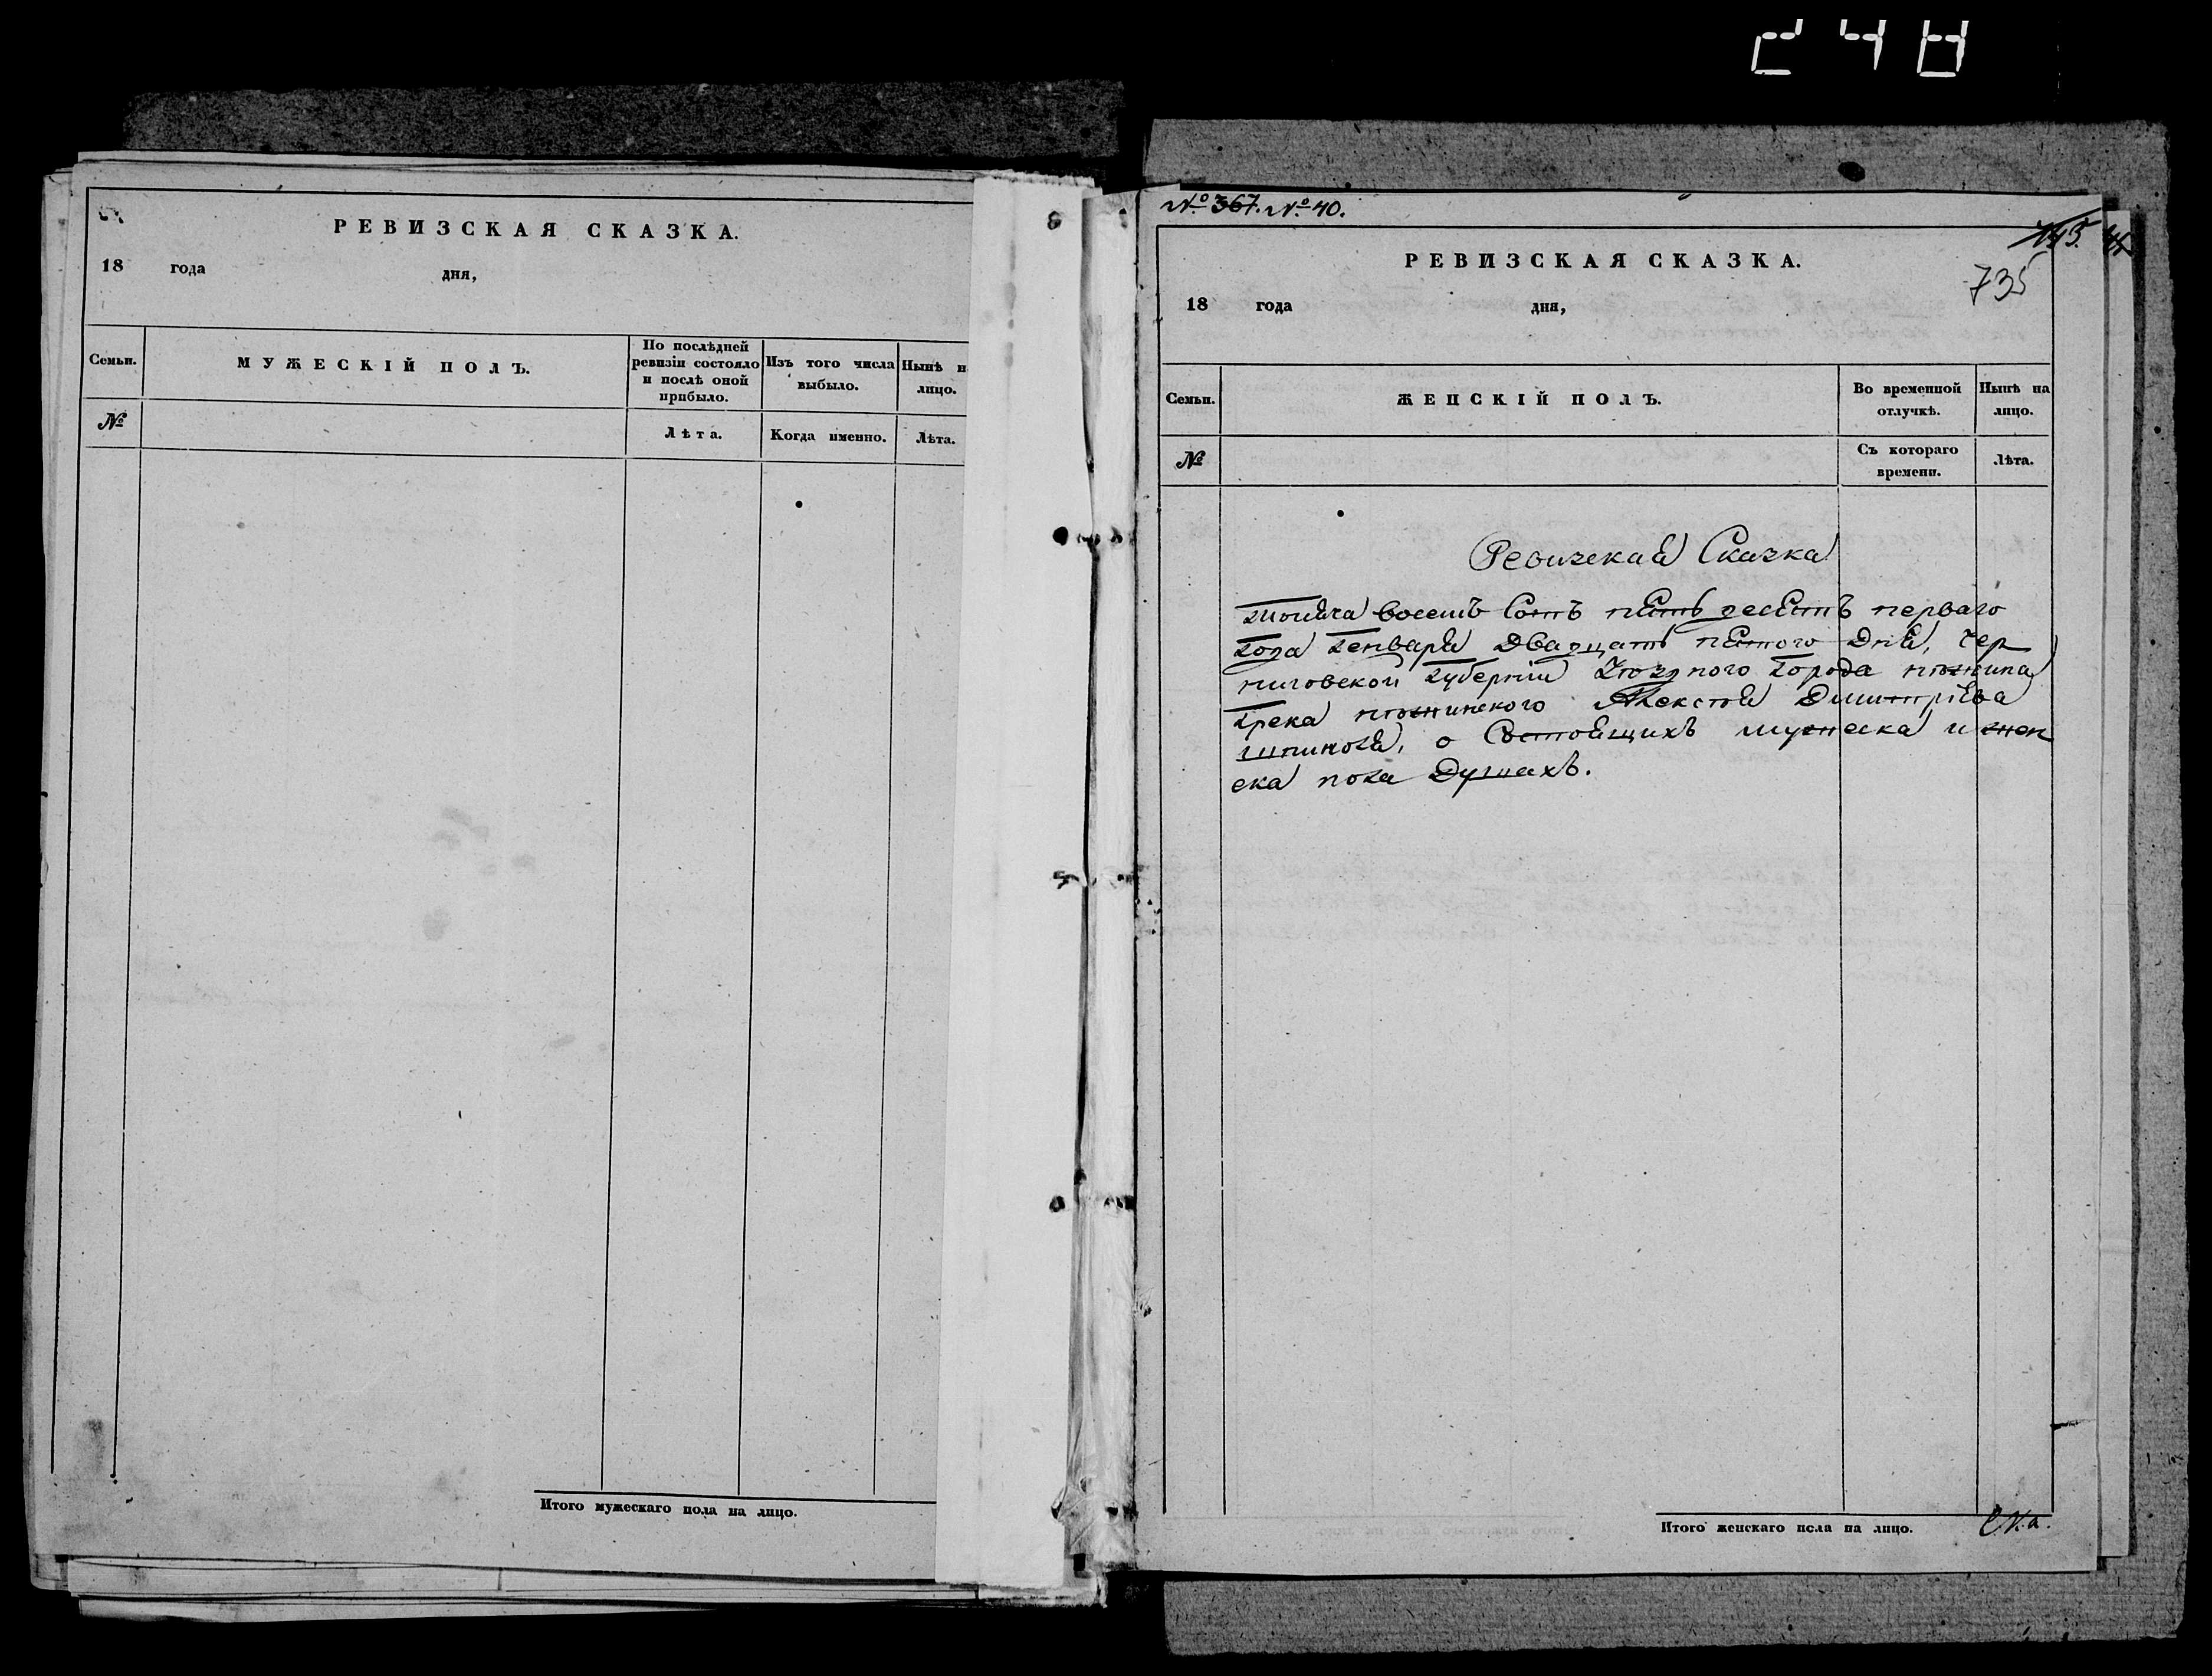 248
РЕВИЗСКАЯ СКАЗКА.
18 года дня,
Семьи.
МУЖЕСКІЙ ПОЛЪ.
По послѣдней
ревизіи состояло
и послѣ оной
прибыло.
Изъ того числа
выбыло.
Нынѣ н
лицо.
№
Лѣта.
Когда именно.
Лѣта.
Итого мужескаго пола на лицо.
№ 367. № 40.
735
РЕВИЗСКАЯ СКАЗКА.
18 года дня,
Семьи.
ЖЕНСКІЙ ПОЛЪ.
Во временной
отлучкѣ.
Нынѣ на
лицо.
№
Съ котораго
времени.
Лѣта.
Ревизская Сказка
тысяча восемъ Сотъ пять десятъ перваго
Года Генваря Двадцать пятого Дня, Чер
ниговской Губерніи Уѣздного Города нѣжина
Грека нѣжинского Алексея Димитріева
о Состоящихъ мужеска и жен
ска пола Душахъ.
Итого женскаго пола на лицо.